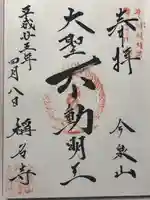 奉拝
今泉山
大聖不動明王
平成廿三年
四月八日
稱名寺